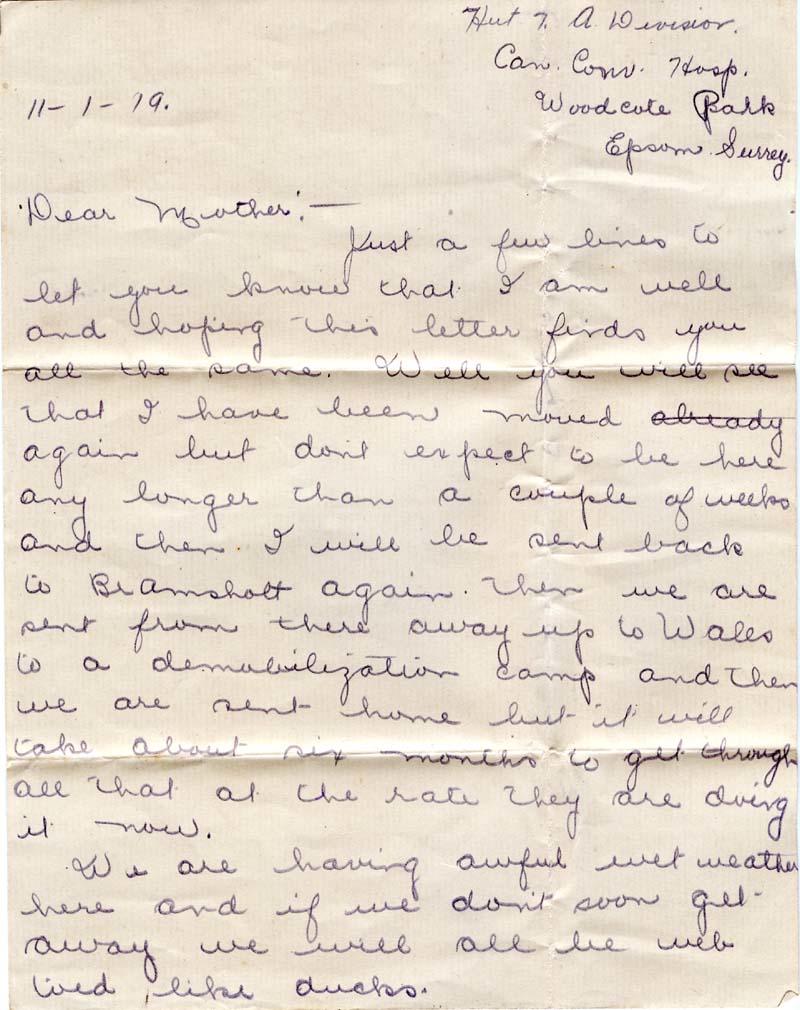 Hut 7. A Division.
Can. Conv. Hosp.
Woodcote Park
Epsom Surrey.
11-1-19.
Dear Mother:—
Just a few lines to
let you know that I am well
and hoping this letter finds you
all the same. Well you will see
that I have been moved already
again but dont expect to be here
any longer than a couple of weeks
and then I will be sent back
to Bramshott again. Then we are
sent from there away up to Wales
to a demobilization camp and then
we are sent home but it will
take about six months to get through
all that at the rate they are doing
it now.
We are having awful wet weather
here and if we don't soon get
away we will all be web
toed like ducks.